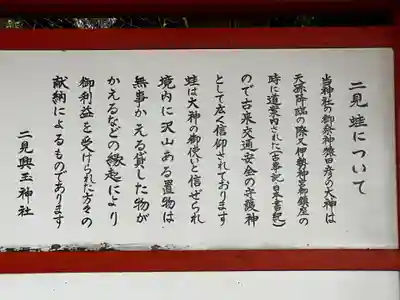 二見 蛙について
当神社の御祭神猿田彦の大神は
天孫降臨の際又伊勢神宮御鎮座の
時に道案内された(古事記・日本書紀)
ので古来交通安全の守護神
として広く信仰されております
蛙は大神の御使いと信ぜられ
境内に沢山ある置物は
無事かえる貸した物が
かえるなどの縁起により
御利益を受けられた方々の
献納によるものであります
二見興玉神社